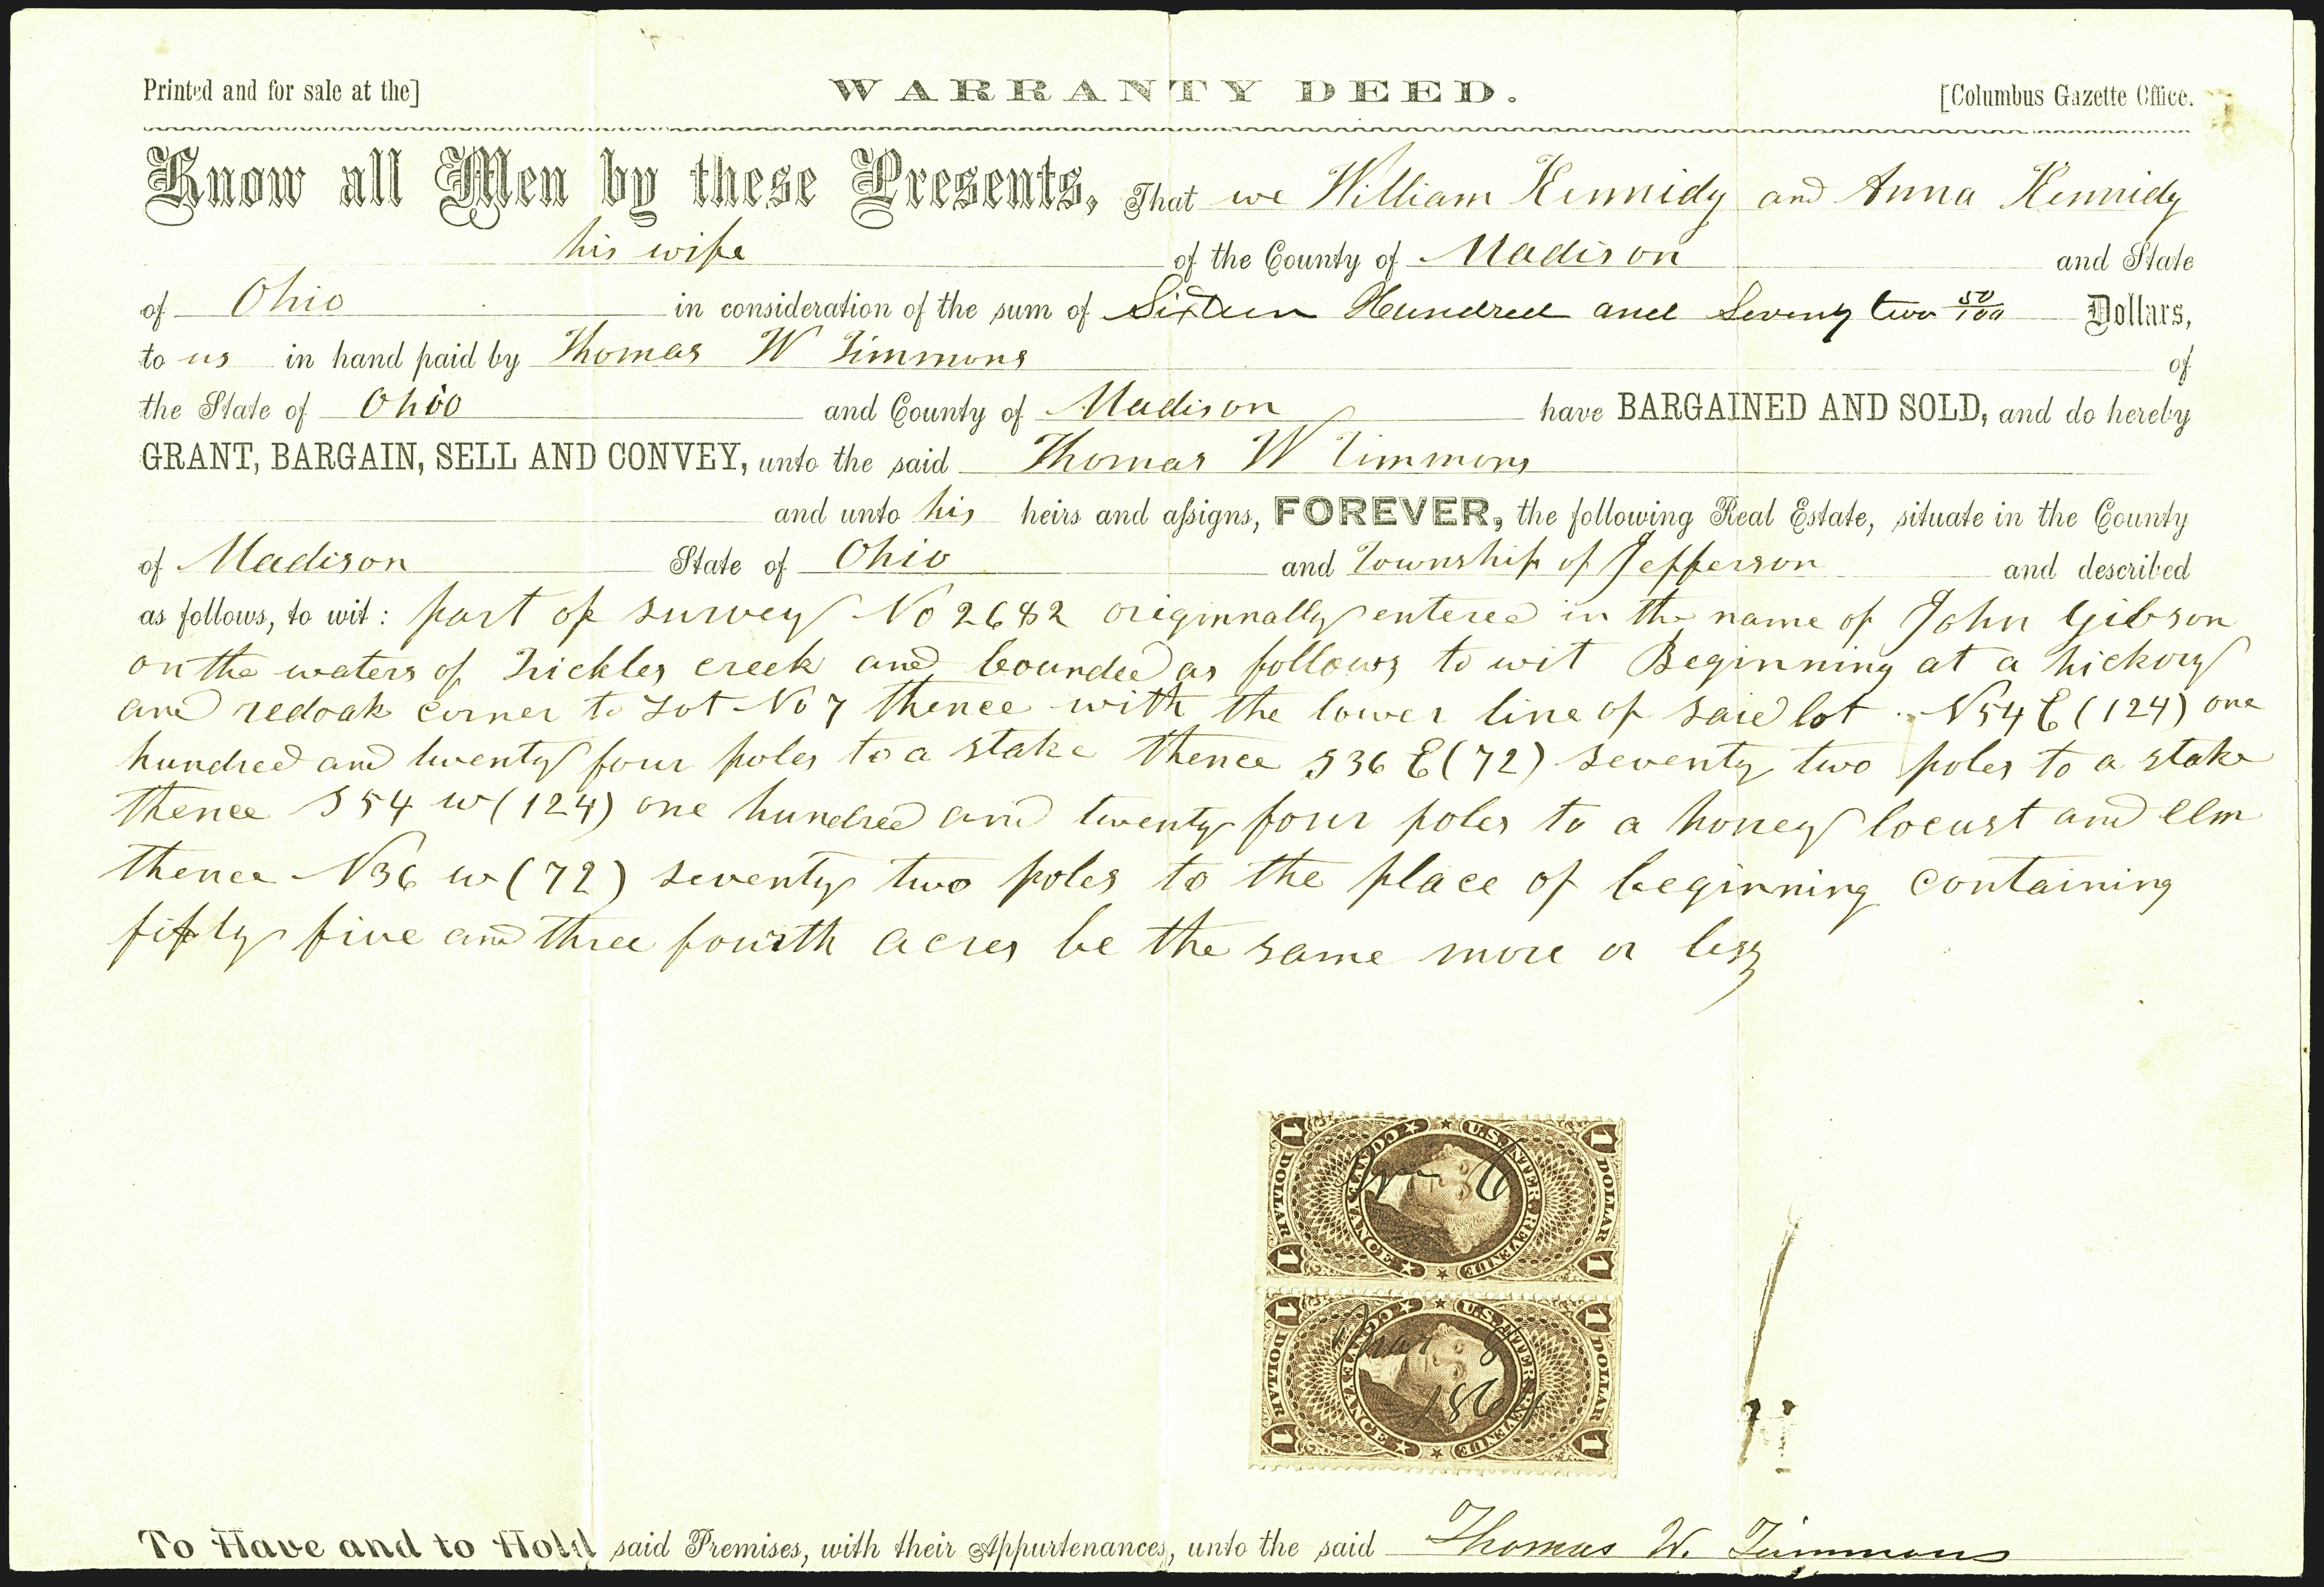 Printed and for sale at the] WARRANTY DEED. [Columbus Gazette Office.
Know all Men by these Presents, That we William Kennidy and Anna Kennidy
his wife of the County of Madison and State
of Ohio in consideration of the sum of Sixteen Hundred and Seventy two 50/100 Dollars,
to us in hand paid by Thomas W Timmons of
the State of Ohio and County of Madison have BARGAINED AND SOLD, and do hereby
GRANT, BARGAIN, SELL AND CONVEY, unto the said Thomas W Timmons
and unto his heirs and assigns, FOREVER, the following Real Estate, situate in the County
of Madison State of Ohio and Township of Jefferson and described
as follows, to wit: part of survey No 2682 originnally entered in the name of John Gibson
on the waters of creek and bounded as follows to wit Beginning at a hickory
and redoak corner to Lot No 7 thence with the lower line of said lot N54 E (124) one
hundred and twenty four poles to a stake thence S36 E (72) seventy two poles to a stake
thence S54 w (124) one hundred and twenty four poles to a honey locust and Elm
thence N36 w (72) seventy two poles to the place of beginning containing
fifty five and three fourth acres be the same more or less
1 DOLLAR 1 U.S. INTER. REVENUE CONVEYANCE 1 DOLLAR 1
1 DOLLAR 1 U.S. INTER. REVENUE CONVEYANCE 1 DOLLAR 1
Mar
1864
To Have and to Hold said Premises, with their Appurtenances, unto the said Thomas W. Timmons